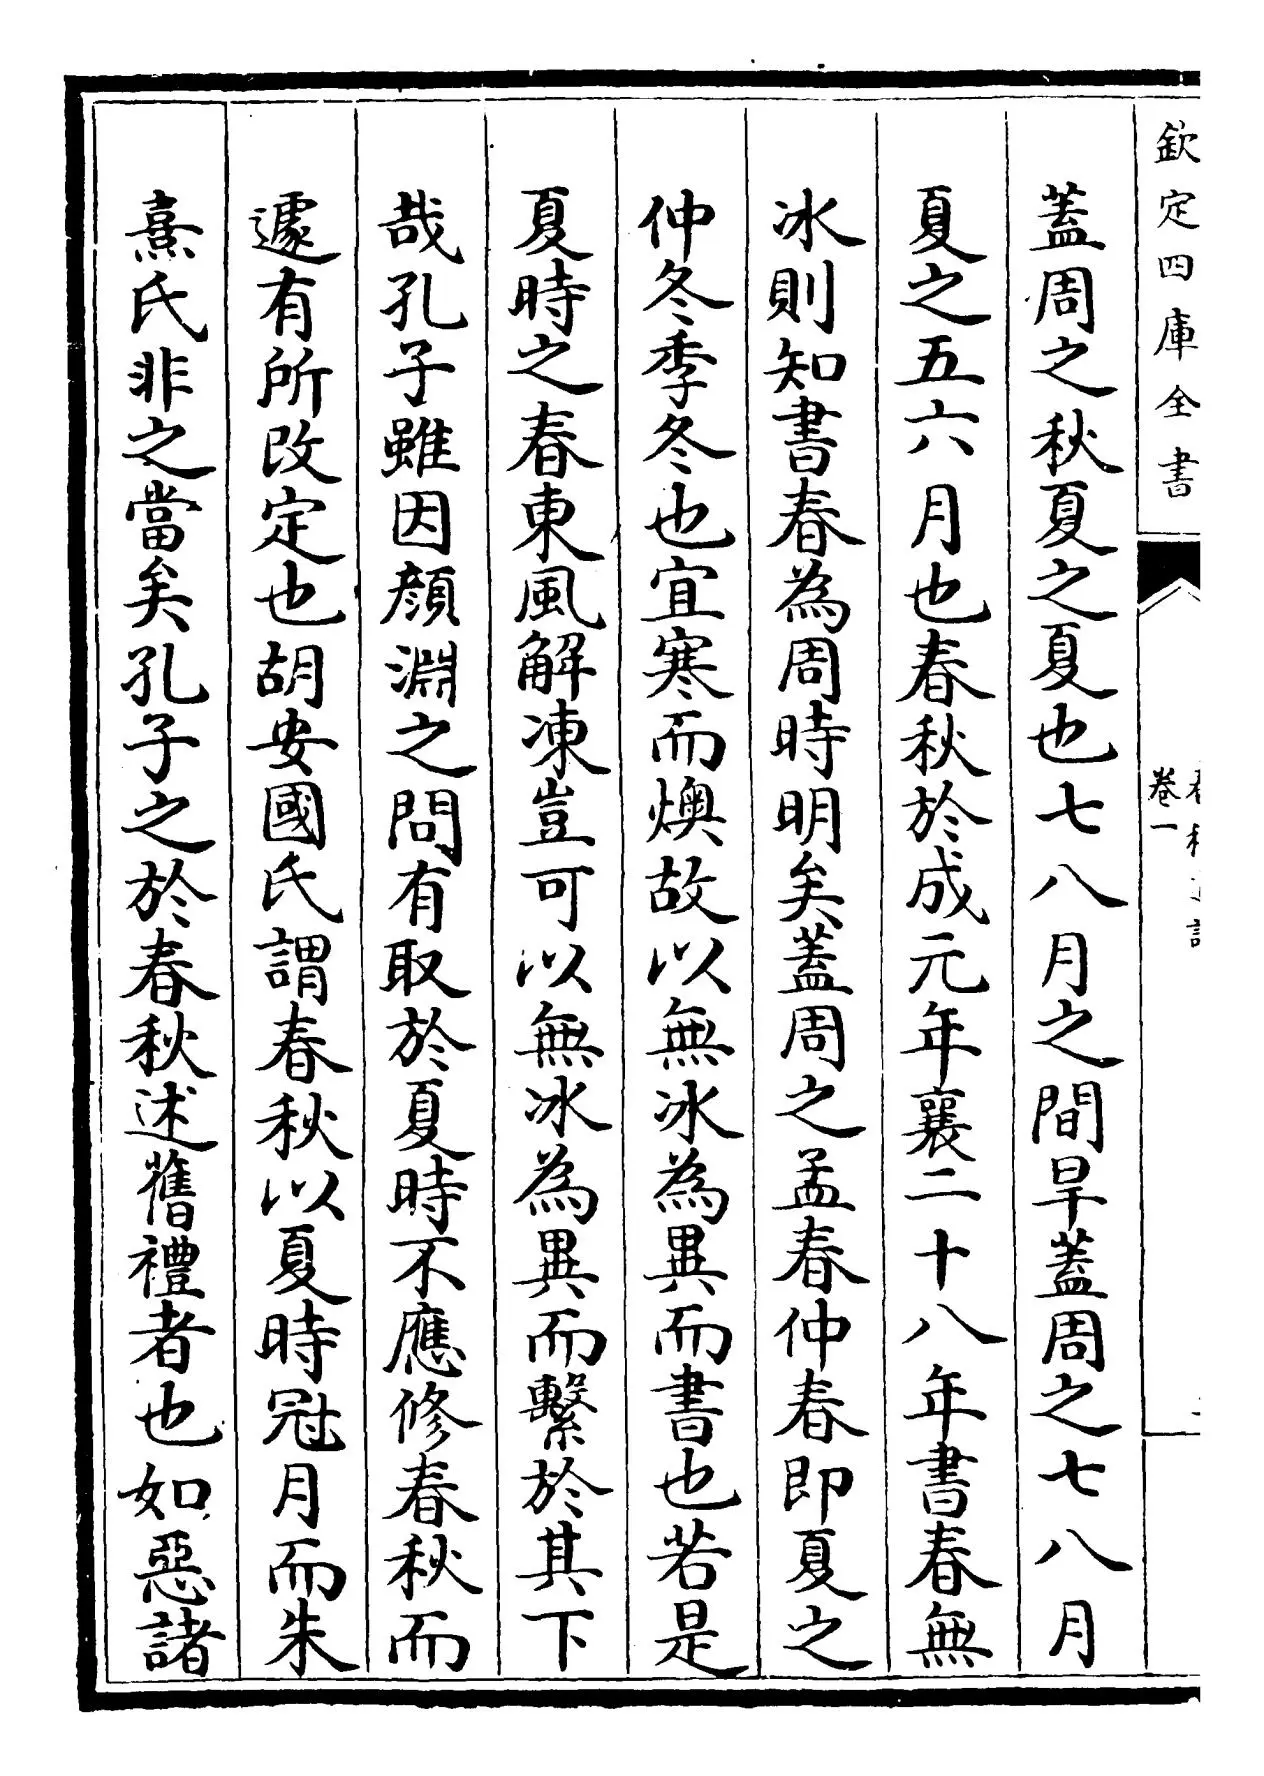 欽定四庫全書
卷一
蓋周之秋夏之夏也七八月之間旱蓋周之七八月
夏之五六月也春秋於成元年襄二十八年書春無
冰則知書春為周時明矣蓋周之孟春仲春即夏之
仲冬季冬也宜寒而燠故以無冰為異而書也若是
夏時之春東風解凍豈可以無冰為異而繫於其下
哉孔子雖因顏淵之問有取於夏時不應修春秋而
遽有所改定也胡安國氏謂春秋以夏時冠月而朱
熹氏非之當矣孔子之於春秋述舊禮者也如惡諸